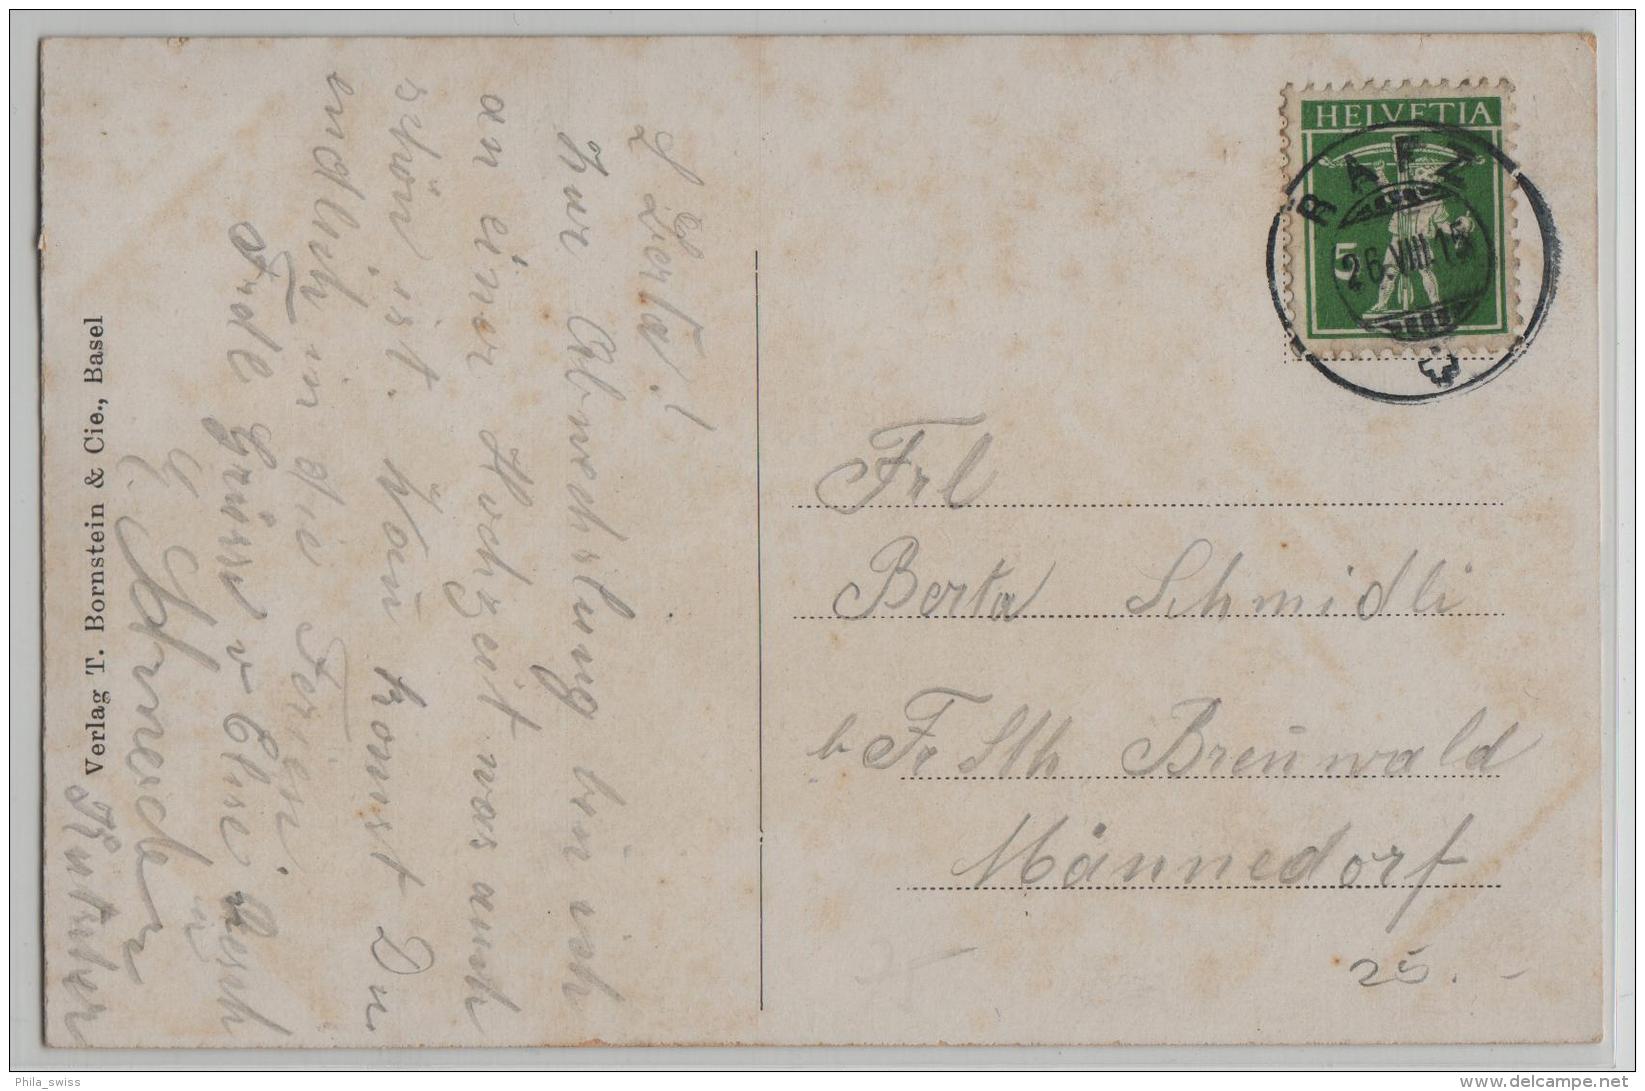 L Berta!
Zur Abwechslung bin ich
an einer Hochzeit was auch
schön ist. Wan komst Du
endlich in die Ferien.
Frdl Grüsse v Elise Aesch
E. Schneider
HELVETIA
5
RAFZ
26.VIII.15
Frl
Berta Schmidli
b Fr Sth Breñwald
Männedorf
25.-
Verlag T. Bornstein & Cie., Basel
Phila_swiss
www.delcampe.net